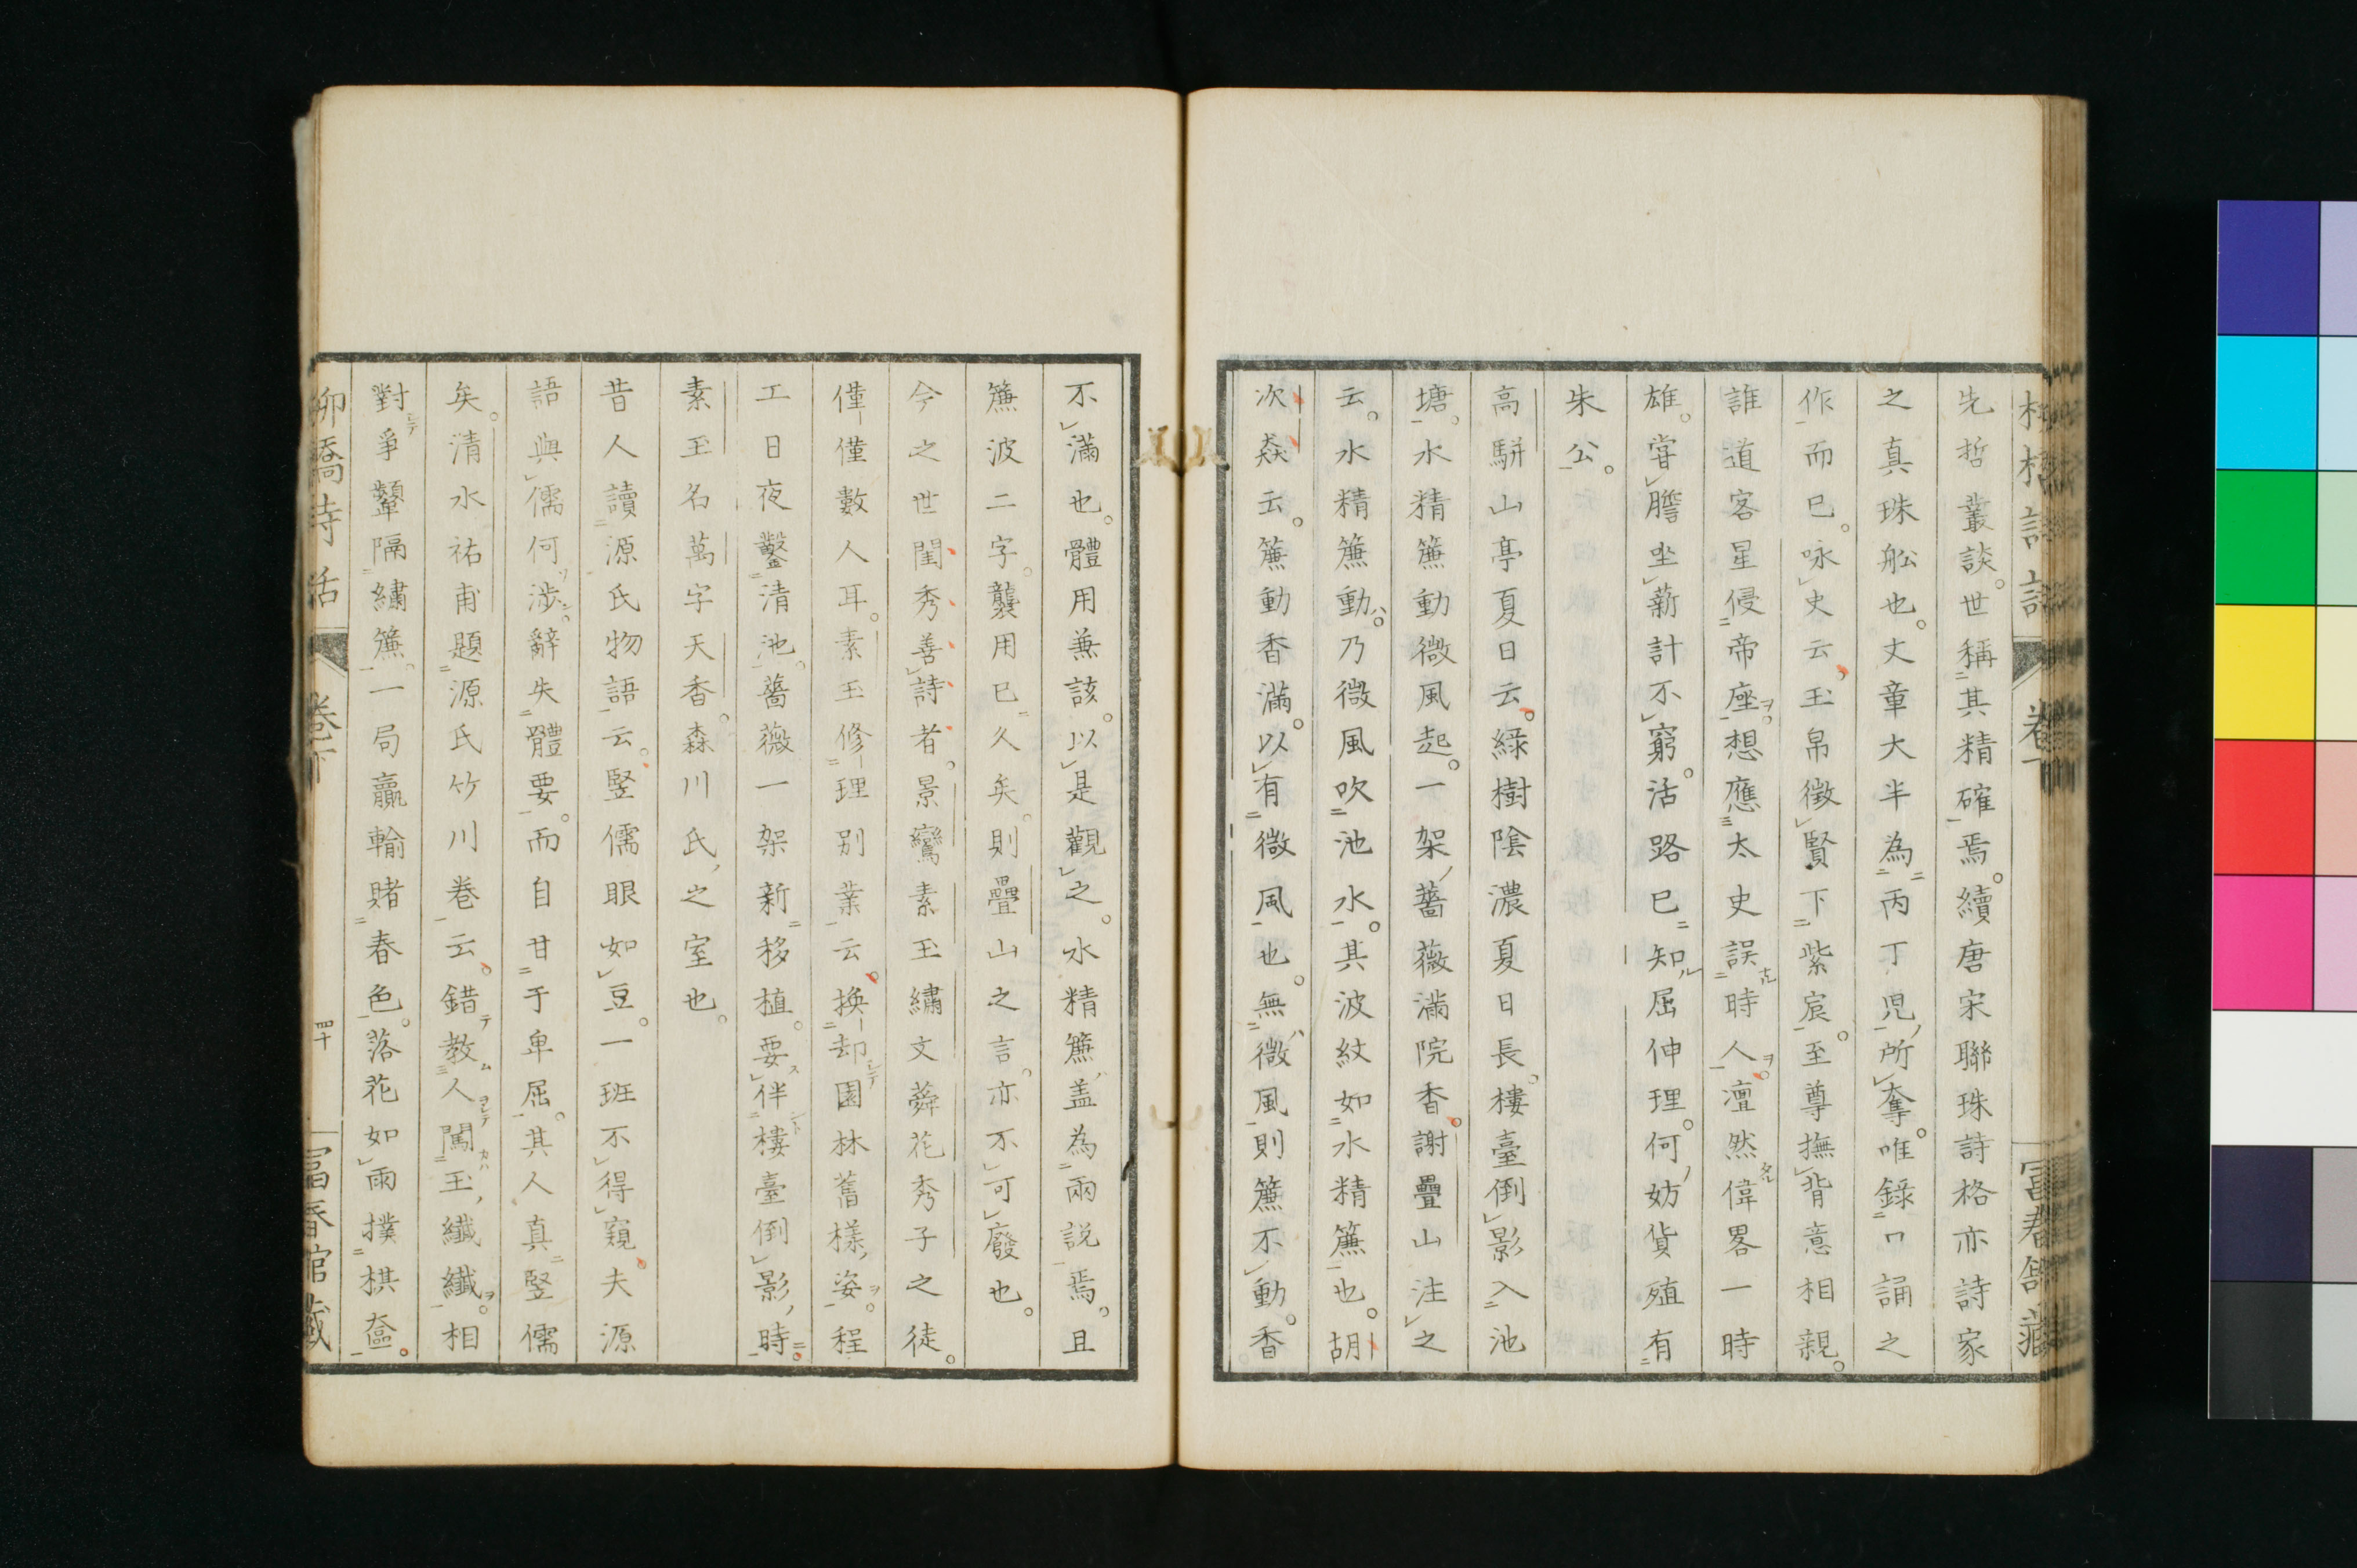 先哲叢談。世稱其精確焉。續唐宋聯珠詩格亦詩家
之真珠舩也。丈章大半為丙丁児所奪。唯錄口誦之
作而已。咏史云。玉帛徵賢下紫宸。至尊撫背意相親。
誰道客星侵帝座。想應太史誤時人。澶然偉畧一時
雄。甞膽坐薪計不窮。活路已知屈伸理。何妨貨殖有
朱公。
高駢山亭夏日云。綠樹陰濃夏日長。樓臺倒影入池
塘。水精簾動微風起。一架薔薇滿院香。謝疊山注之
云。水精簾動。乃微風吹池水。其波紋如水精簾也。胡
次焱云。簾動香滿。以有微風也。無微風則簾不動。香
不滿也。體用兼該。以是觀之。水精簾蓋為兩説焉。且
簾波二字。襲用已久矣。則疊山之言。亦不可廢也。
今之世閨秀善詩者。景鸞素玉繡文蕣花秀子之徒。
僅僅數人耳。素玉修理別業云。換却園林舊樣姿。程
工日夜鑿清池。薔薇一架新移植。要伴樓臺倒影時。
素玉名萬字天香。森川氏之室也。
昔人讀源氏物語云。竪儒眼如豆。一班不得窺夫源
語與儒何涉。辭失體要。而自甘于卑屈。其人真竪儒
矣。清水祐甫題源氏竹川巻云。錯教人闖玉纖纖。相
對爭顰隔繡簾。一局贏輸賭春色。落花如雨撲棋奩。
柳橋詩話　巻下　四十　富春館藏